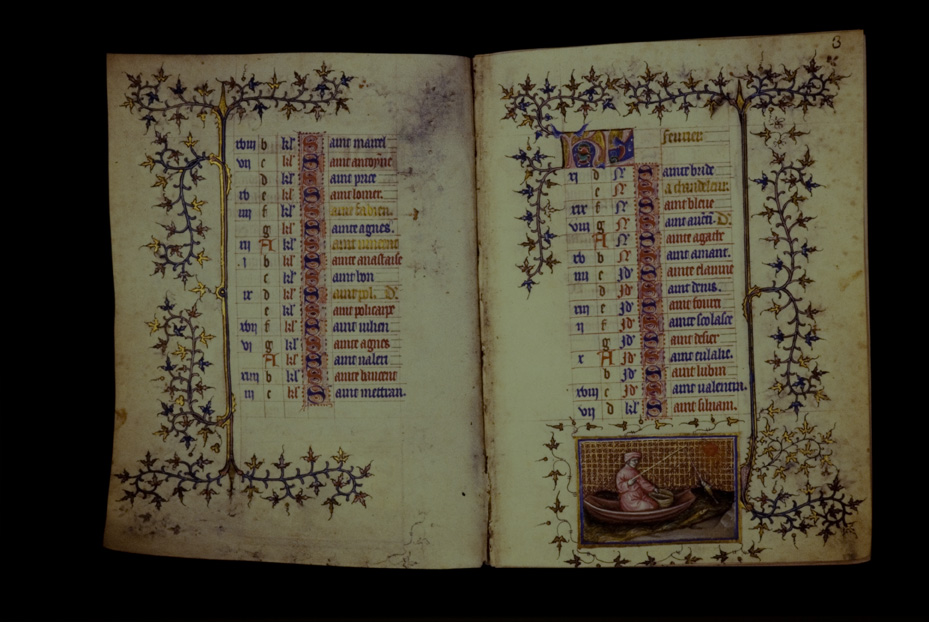 xviii b kl' Saint marcel
vii c kl' Saint antoyne
d kl' Saint price
xv e kl' Saint lomer.
iiii f kl' Saint fabien.
g kl' Sainte agnes.
xii A kl' Saint vincent
i b kl' Sainte anastaise
c kl' Saint
ix d kl' Saint pol. D.
e kl' Saint policarpe
xvii f kl' Saint iulien
vi g kl' Sainte agnes
A kl' Saint valeri
xiiii b kl' Sainte
iii c kl' Saint
3
fevrier
xi d N' Sainte bride
e N' La chandeleur.
xix f N' Saint bleve
viii g N' Saint D.
A N' Sainte agathe
xvi b N' Saint amant.
c Id' Sainte
d Id' Saint denis.
e Id' Saint
ii f Id' Sainte scolasce
g Id' Saint desier
x A Id' Sainte eulalie.
b Id' Saint lubin
xviii c Id' Saint valentin.
vii d kl' Saint silvain.